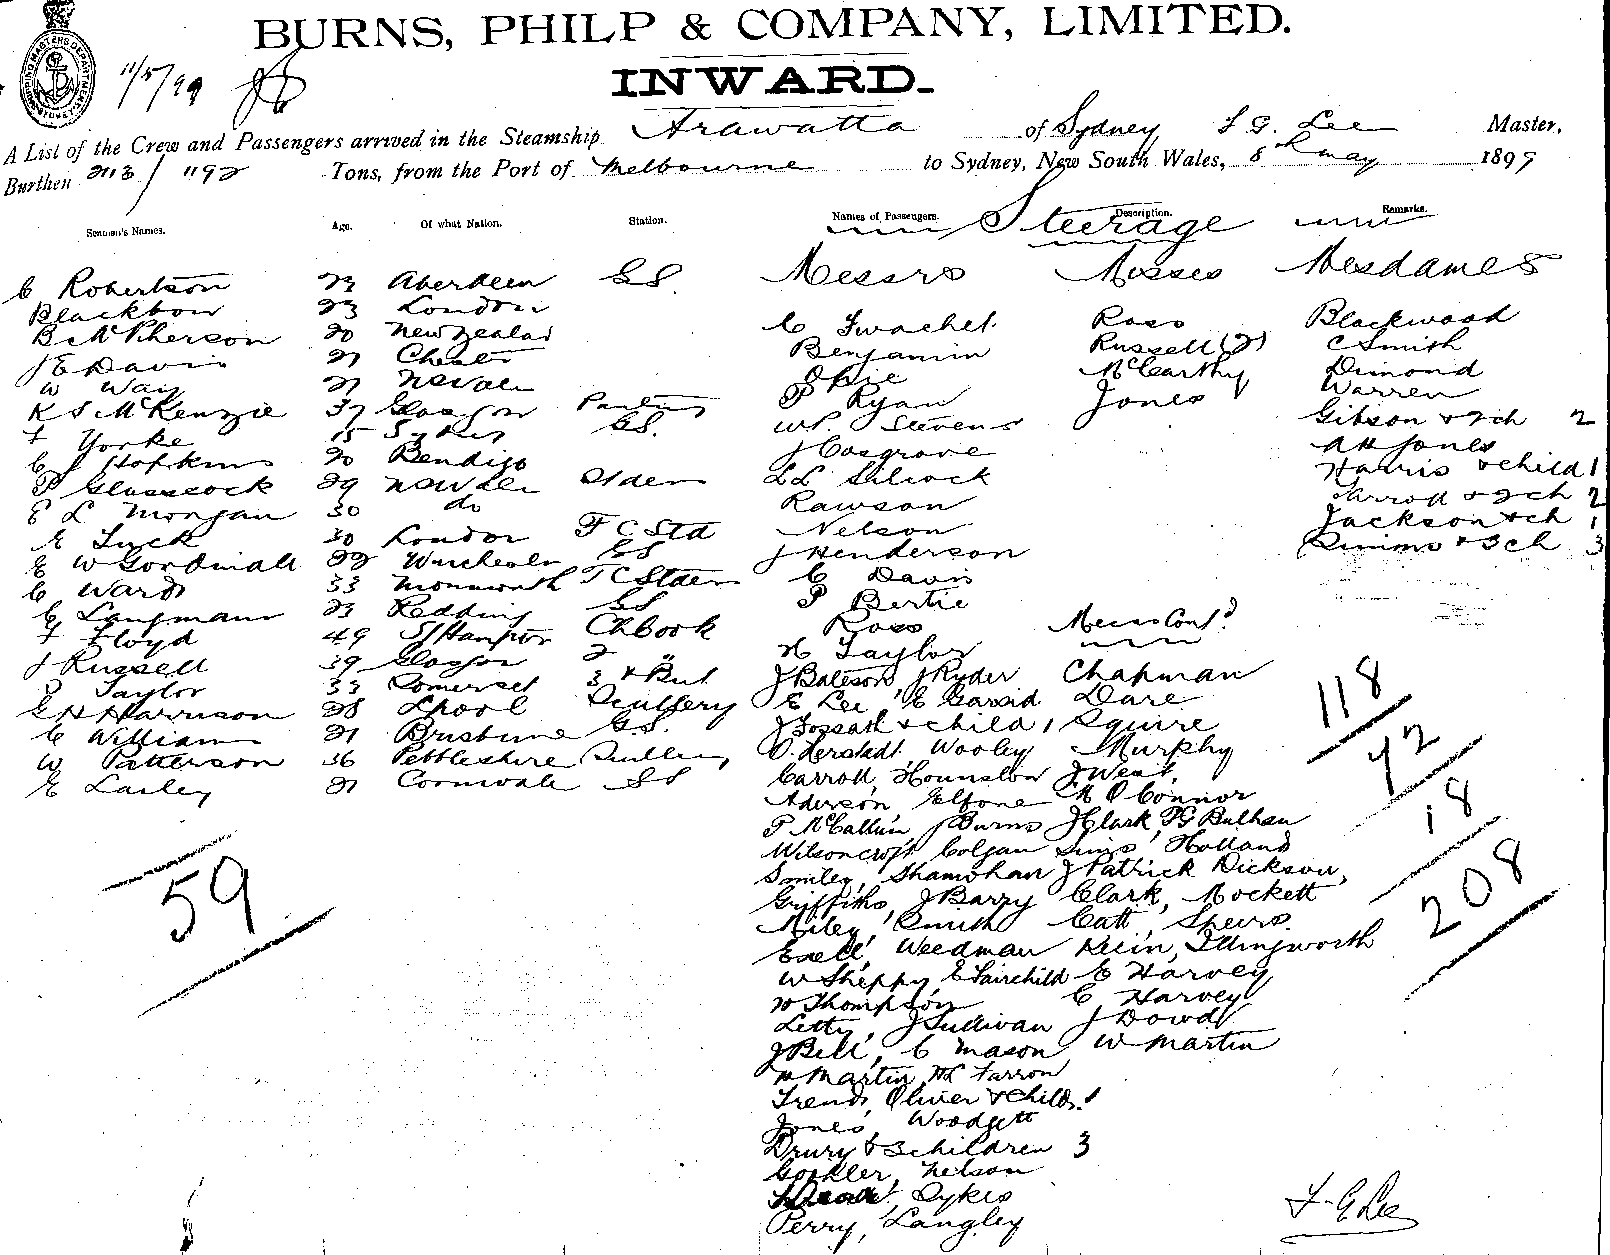 BURNS, PHILP & COMPANY, LIMITED.
INWARD.
11/5/99
A List of the Crew and Passengers arrived in the Steamship Arawatta of Sydney F G. Lee Master,
Burthen 2113/1192 Tons, from the Port of Melbourne to Sydney, New South Wales, 8th May 1899
Seamen's Names. Age. Of what Nation. Station. Names of Passengers. Description. Remarks.
Steerage
C Robertson 23 Aberdeen GS. Messrs Misses Mesdames
Blackbow 23 London
B McPherson 20 New Zealand C Twachel Ross Blackwood
J E Davis 21 Chester Benjamin Russell (2) C Smith
W Way 21 Opie McCarthy Dimond
K S McKenzie 37 Glasgow Pantry P Ryan Jones Warren
F Yorke 15 Sydney GS. W. Stevens Gibson & 2 ch 2
C J Hopkins 20 Bendigo J Cosgrove A H Jones
P Glasscock 29 LL Silcock Harris & child 1
E L Morgan 30 do Rawson & 2 ch 2
E Tuck 30 London F C Std Nelson Jackson & ch 1
E W Gordinall 22 GS J Henderson Simms & 3 ch 3
C Ward 33 Monmouth C Davis
E Langman 23 Redding GS P Bertie
F Floyd 49 S/Hampton Ch Cook Ross Messrs Contd
J Russell 39 Glasgow 2 " H Taylor
S Taylor 33 Somerset 3 & But J Bateson, J Ryder Chapman
E H Harrison 28 Lpool Scullery E Lee, E Garsid Dare
C William 21 Brisbane GS. & child 1 Squire
W Patterson 36 Pebbleshire O. Herstedt, Wooley Murphy
E Lailey 21 Cornwale GS Carroll, Hounslow J West,
Aderson, Elfone M O Connor
P McCallum, J Burns J Clark, P G Bulhen
Wilsoncroft, Colgan Sims, Holland
Smiley, Shamohan J Patrick Dickson,
Griffiths, J Barry Clark, Mockett
Miley, Smith Catt, Speirs.
Exell, Weedman Klein, Illingworth
W Sheppy, E Fairchild C Harvey,
W Thompson C Harvey
Letty, J Sullivan J Dowd
J Bell, C Mason W Martin
W Martin, W L Farron
Trend, Oliver & Child. 1
Jones, Woodgett
Drury & 3 children 3
Nelson
Sykes
Perry, Langley
59
118
72
18
208
F. G. Lee